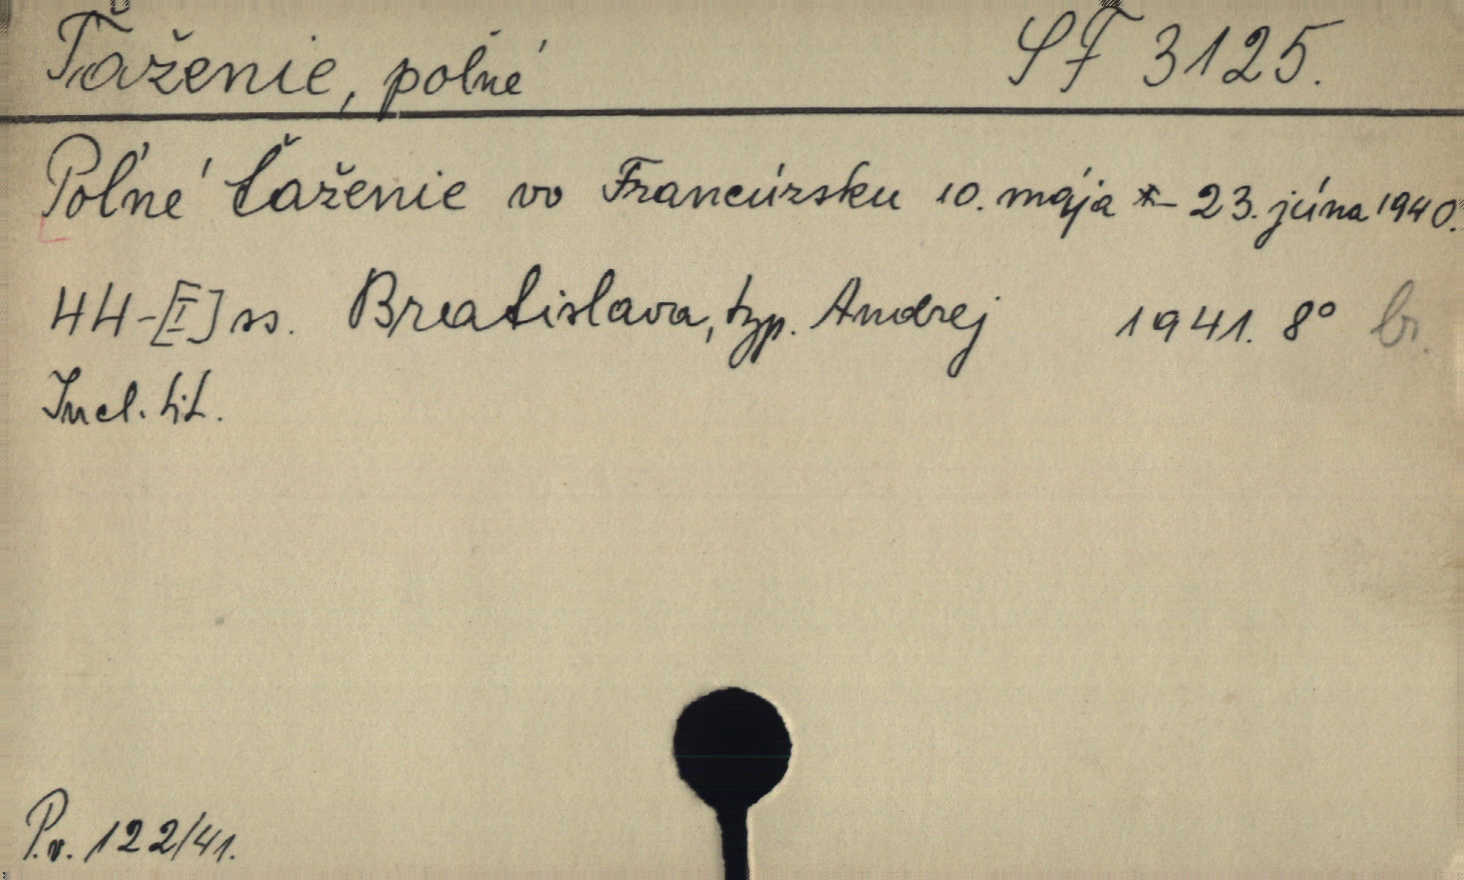 Ťaženie, poľné SF 3125.
Poľné ťaženie vo Francúzsku 10. mája - 23. júna 1940.
44-[I] ss. Bratislava, typ. Andrej 1941. 8° br.
Incl. tit.
P.v. 122/41.